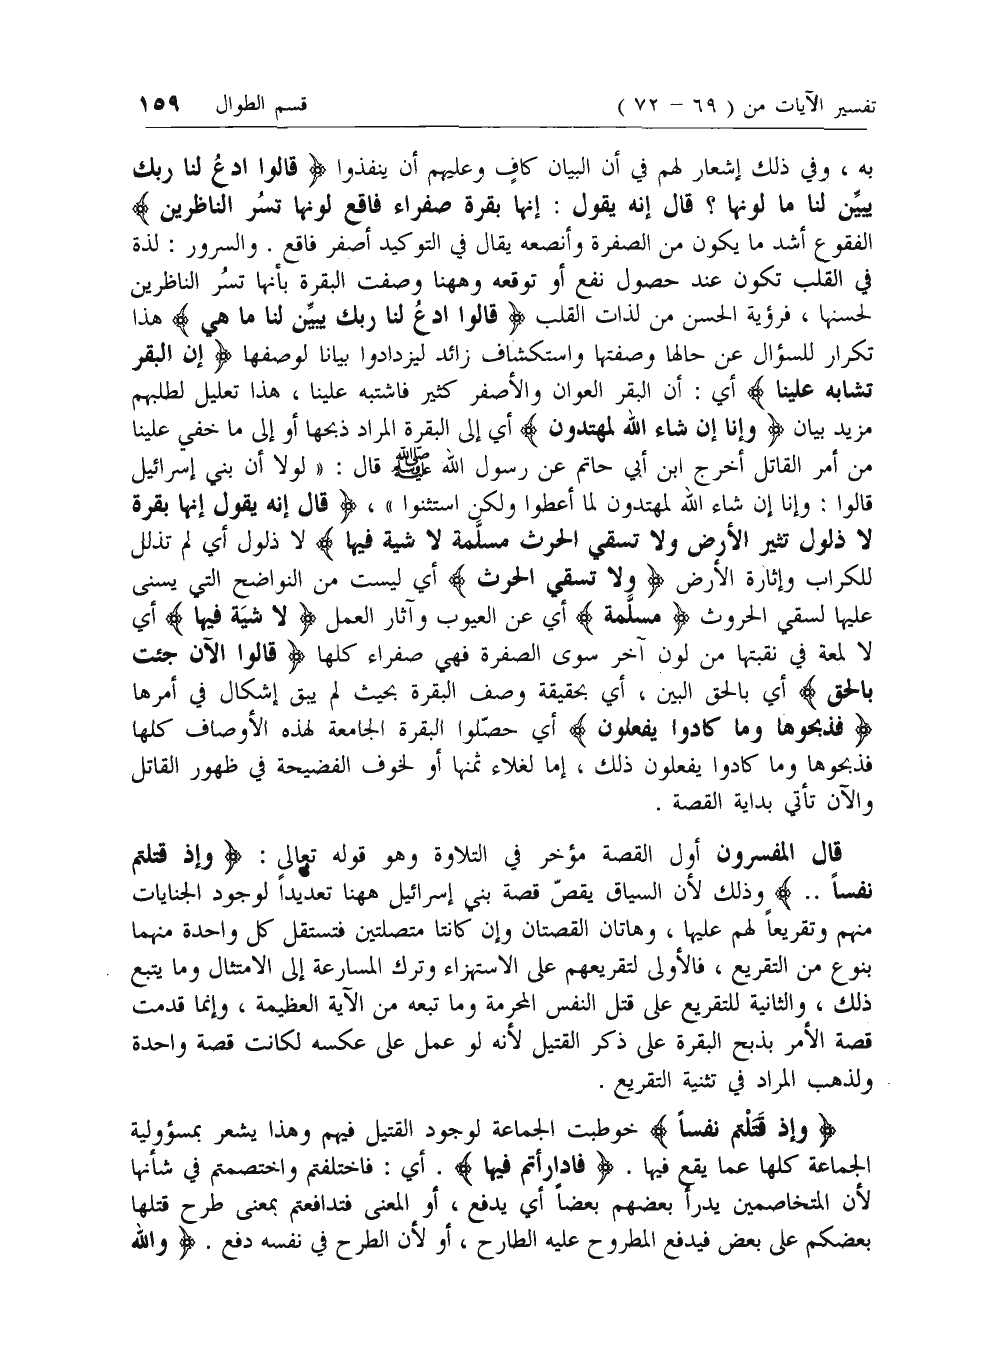 تفسير الآيات من ( ٦٩ – ٧٢ ) قسم الطوال ١٥٩
به ، وفي ذلك إشعار لهم في أن البيان كافٍ وعليهم أن ينفذوا ﴿ قالوا ادعُ لنا ربك
يبيِّن لنا ما لونها ؟ قال إنه يقول : إنها بقرة صفراء فاقع لونها تسرُ الناظرين ﴾
الفقوع أشد ما يكون من الصفرة وأنصعه يقال في التوكيد أصفر فاقع . والسرور : لذة
في القلب تكون عند حصول نفع أو توقعه وههنا وصفت البقرة بأنها تسرُ الناظرين
لحسنها ، فرؤية الحسن من لذات القلب ﴿ قالوا ادعُ لنا ربك يبيِّن لنا ما هي ﴾ هذا
تكرار للسؤال عن حالها وصفتها واستكشاف زائد ليزدادوا بيانا لوصفها ﴿ إن البقر
تشابه علينا ﴾ أي : أن البقر العوان والأصفر كثير فاشتبه علينا ، هذا تعليل لطلبهم
مزيد بيان ﴿ وإنا إن شاء الله لمهتدون ﴾ أي إلى البقرة المراد ذبحها أو إلى ما خفي علينا
من أمر القاتل أخرج ابن أبي حاتم عن رسول الله ﷺ قال : « لولا أن بني إسرائيل
قالوا : وإنا إن شاء الله لمهتدون لما أعطوا ولكن استثنوا » ، ﴿ قال إنه يقول إنها بقرة
لا ذلول تثير الأرض ولا تسقي الحرث مسلَّمة لا شية فيها ﴾ لا ذلول أي لم تذلل
للكراب وإثارة الأرض ﴿ ولا تسقي الحرث ﴾ أي ليست من النواضح التي يسنى
عليها لسقي الحروث ﴿ مسلَّمة ﴾ أي عن العيوب وآثار العمل ﴿ لا شيَة فيها ﴾ أي
لا لمعة في نقبتها من لون آخر سوى الصفرة فهي صفراء كلها ﴿ قالوا الآن جئت
بالحق ﴾ أي بالحق البين ، أي بحقيقة وصف البقرة بحيث لم يبق إشكال في أمرها
﴿ فذبحوها وما كادوا يفعلون ﴾ أي حصّلوا البقرة الجامعة لهذه الأوصاف كلها
فذبحوها وما كادوا يفعلون ذلك ، إما لغلاء ثمنها أو لخوف الفضيحة في ظهور القاتل
والآن تأتي بداية القصة .
قال المفسرون أول القصة مؤخر في التلاوة وهو قوله تعالى : ﴿ وإذ قتلتم
نفساً .. ﴾ وذلك لأن السياق يقصّ قصة بني إسرائيل ههنا تعديداً لوجود الجنايات
منهم وتقريعاً لهم عليها ، وهاتان القصتان وإن كانتا متصلتين فتستقل كل واحدة منهما
بنوع من التقريع ، فالأولى لتقريعهم على الاستهزاء وترك المسارعة إلى الامتثال وما يتبع
ذلك ، والثانية للتقريع على قتل النفس المحرمة وما تبعه من الآية العظيمة ، وإنما قدمت
قصة الأمر بذبح البقرة على ذكر القتيل لأنه لو عمل على عكسه لكانت قصة واحدة
ولذهب المراد في تثنية التقريع .
﴿ وإذ قَتَلْتم نفساً ﴾ خوطبت الجماعة لوجود القتيل فيهم وهذا يشعر بمسؤولية
الجماعة كلها عما يقع فيها . ﴿ فادارأتم فيها ﴾ . أي : فاختلفتم واختصمتم في شأنها
لأن المتخاصمين يدرأ بعضهم بعضاً أي يدفع ، أو المعنى فتدافعتم بمعنى طرح قتلها
بعضكم على بعض فيدفع المطروح عليه الطارح ، أو لأن الطرح في نفسه دفع . ﴿ والله